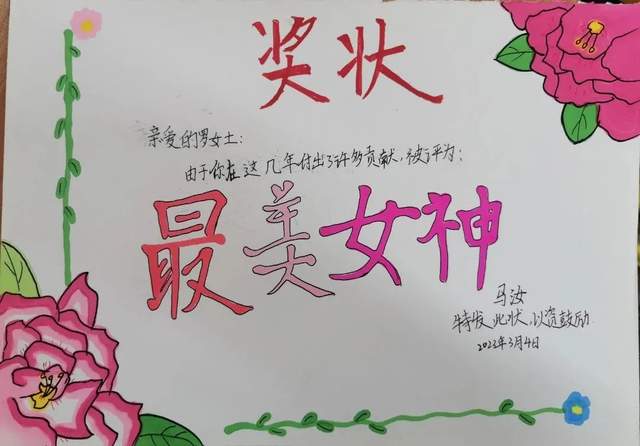 奖状
亲爱的罗女士：
由于你在这几年付出了许多贡献，被评为：
最美女神
马汝
特发此状，以资鼓励
2022年3月4日